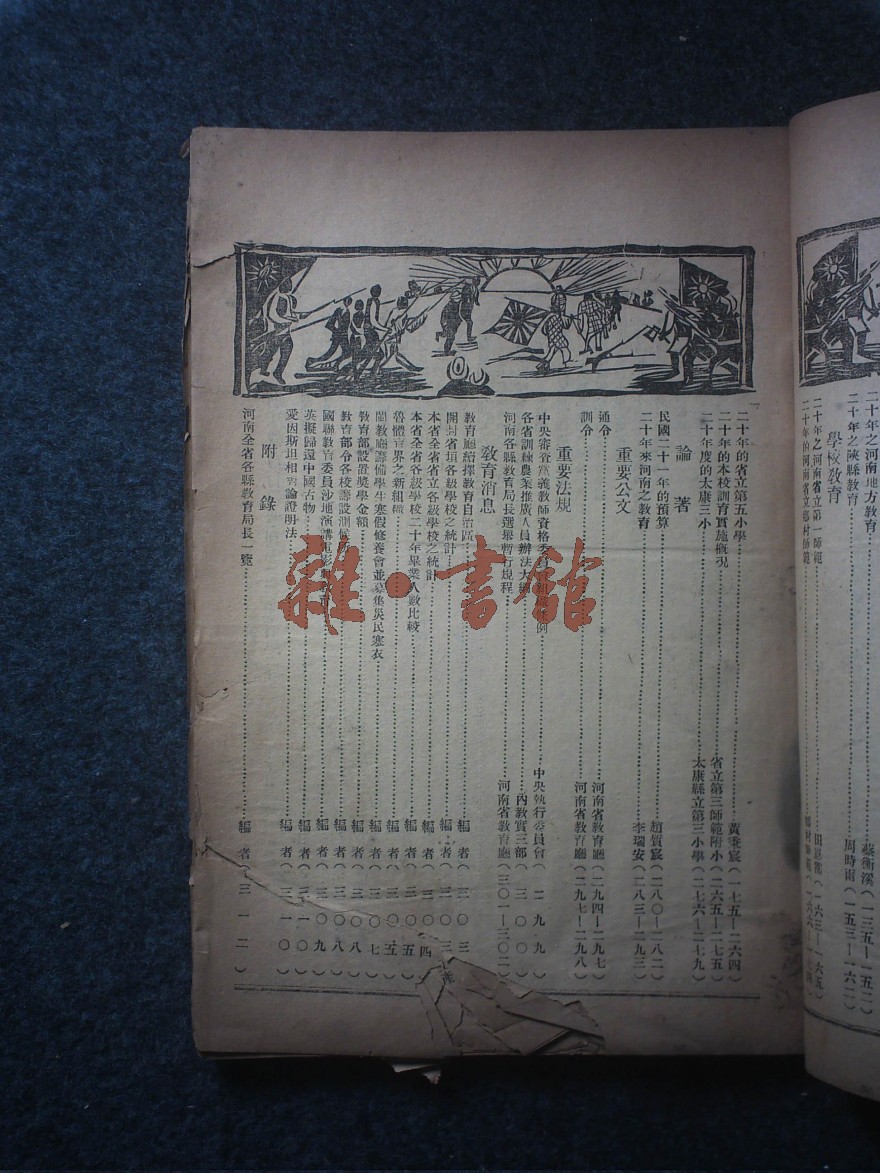 二十年之河南地方教育 蔡衡溪(一三五—一五二)
二十年之陝縣教育 周時雨(一五三—一六二)
學校教育
二十年之河南省立第一師範
二十年的河南省立鄉村師範
二十年的省立第五小學 (一七五—二六四)
二十年的本校訓育實施概況 省立第三師範附小(二六五—二七五)
二十年度的太康三小 太康縣立第三小學(二七六—二七九)
論著
民國二十一年的預算 趙質宸(二八〇—二八二)
二十年來河南之教育 李瑞安(二八三—二九三)
重要公文
通令 河南省教育廳(二九四—二九七)
訓令 河南省教育廳(二九七—二九八)
重要法規
中央審查黨義教師資格委員會 例 中央執行委員會(二九九)
各省訓練農業推廣人員辦法大綱 內教實三部(三〇〇)
河南各縣教育局長選舉暫行規程 河南省教育廳(三〇一—三〇二)
教育消息
教育廳續擇教育自治區 編者(三〇三)
開封省垣各級學校之統計 編者(三〇三)
本省全省省立各級學校之統計 編者(三〇四)
本省全省各級學校二十年畢業人數比較 編者(三〇五)
魯體育界之新組織 編者(三〇五)
閩教廳籌備學生寒假修養會並募集災民寒衣 編者(三〇七)
教育部設置獎學金額 編者(三〇八)
教育部令各校籌設測候所 編者(三〇八)
國聯教育委員沙地演講電影 編者(三〇九)
英擬歸還中國古物 編者(三一〇)
愛因斯坦相對論證明法 編者(三一〇)
附錄
河南全省各縣教育局長一覽 編者(三一二)
雜·書館